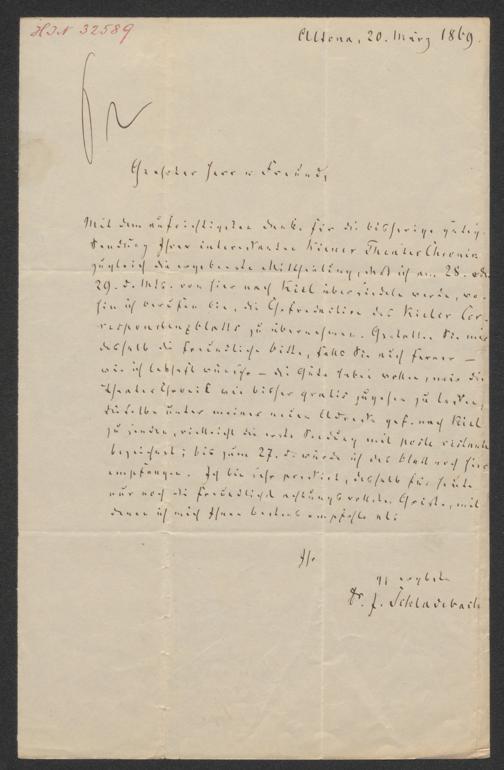 HIN 32589
Altona, 20. März 1869.
Geehrter Herr u. Freund,
Mit dem aufrichtigsten Danke für die bisherige gütige
Sendung Ihrer interessanten Wiener Theater Chronik
zugleich die ergebenste Mittheilung, daß ich am 28. oder
29. d. Mts. von hier nach Kiel übersiedeln werde, wo-
hin ich berufen bin, die Chefredaction des Kieler Cor-
respondenzblatts zu übernehmen. Gestatten Sie mir
deshalb die freundliche Bitte, falls Sie auch ferner –
wie ich lebhaft wünsche – die Güte haben wollen, mir die
Theaterchronik wie bisher gratis zugehen zu lassen,
dieselbe unter meiner neuen Adresse gef. nach Kiel
zu senden, vielleicht die erste Sendung mit poste restante
bezeichnet; bis zum 27. d. würde ich das Blatt noch hier
empfangen. Ich bin sehr pressirt, deshalb für heute
nur noch die freundlichst achtungsvollsten Grüße, mit
denen ich mich Ihnen bestens empfehle als
Ihr
ergebenster
Dr. J. Schladebach